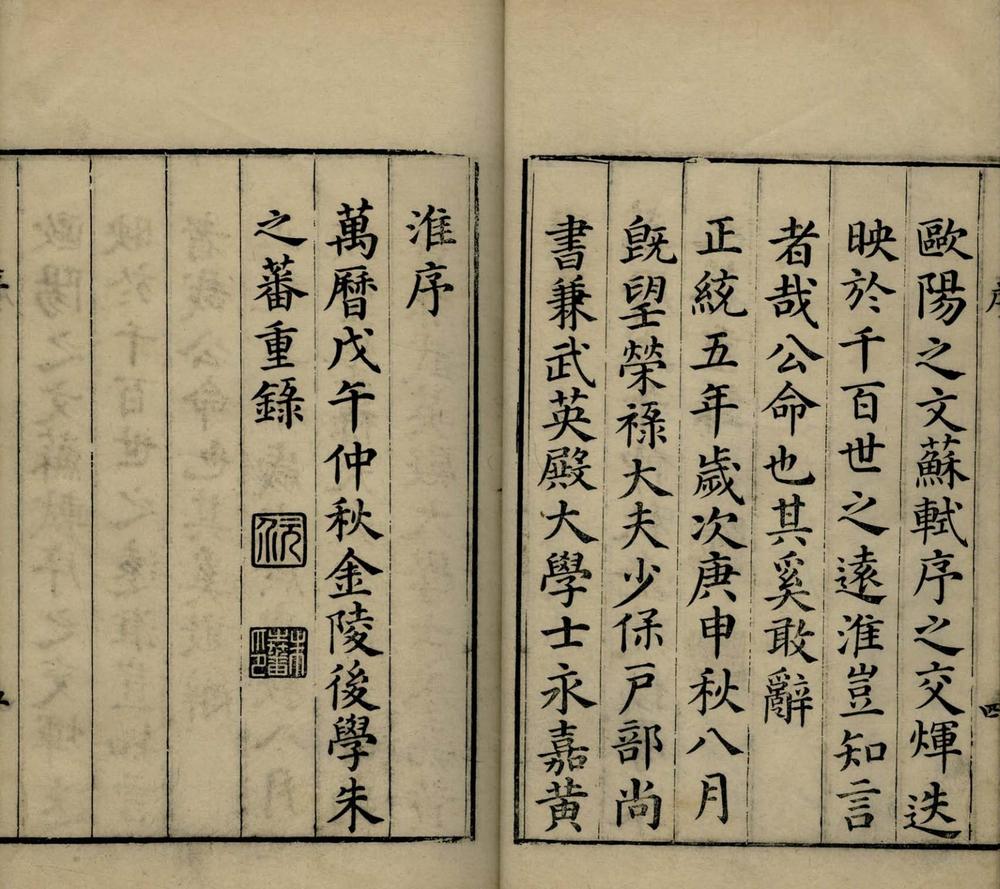 歐陽之文蘇軾序之交煇迭
映於千百世之遠淮豈知言
者哉公命也其奚敢辭
正統五年歲次庚申秋八月
旣望榮祿大夫少保戶部尚
書兼武英殿大學士永嘉黃
淮序
萬曆戊午仲秋金陵後學朱
之蕃重錄
序
四